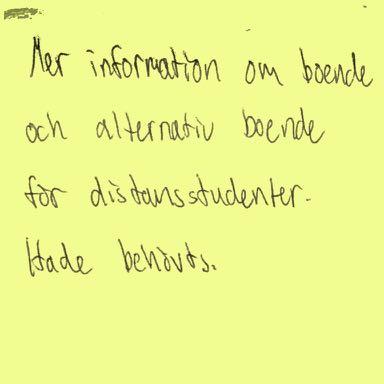 Mer information om boende
och alternativ boende
för distansstudenter.
Hade behövts.